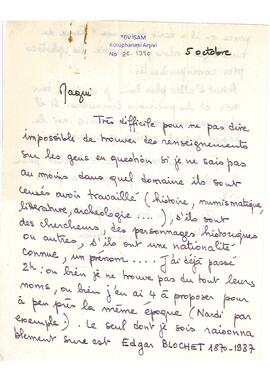 TDV İSAM
Kütüphanesi Arşivi
No 2E.1390
5 octobre
Maqui
Très difficile pour ne pas dire
impossible de trouver des renseignements
sur les gens en question si je ne sais pas
au moins dans quel domaine ils sont
censés avoir travaillé (histoire, numismatique,
litterature, archeologie ....), s'ils sont
des chercheurs, des personnages historiques
ou autres, s'ils ont une nationalité
connue, un prénom .... J'ai déjà passé
2h : ou bien je ne trouve pas du tout leurs
noms, ou bien j'en ai 4 à proposer pour
à peu près la même époque (Nardi par
exemple). Le seul dont je sois raisonna
blement sure est Edgar BLOCHET 1870-1937